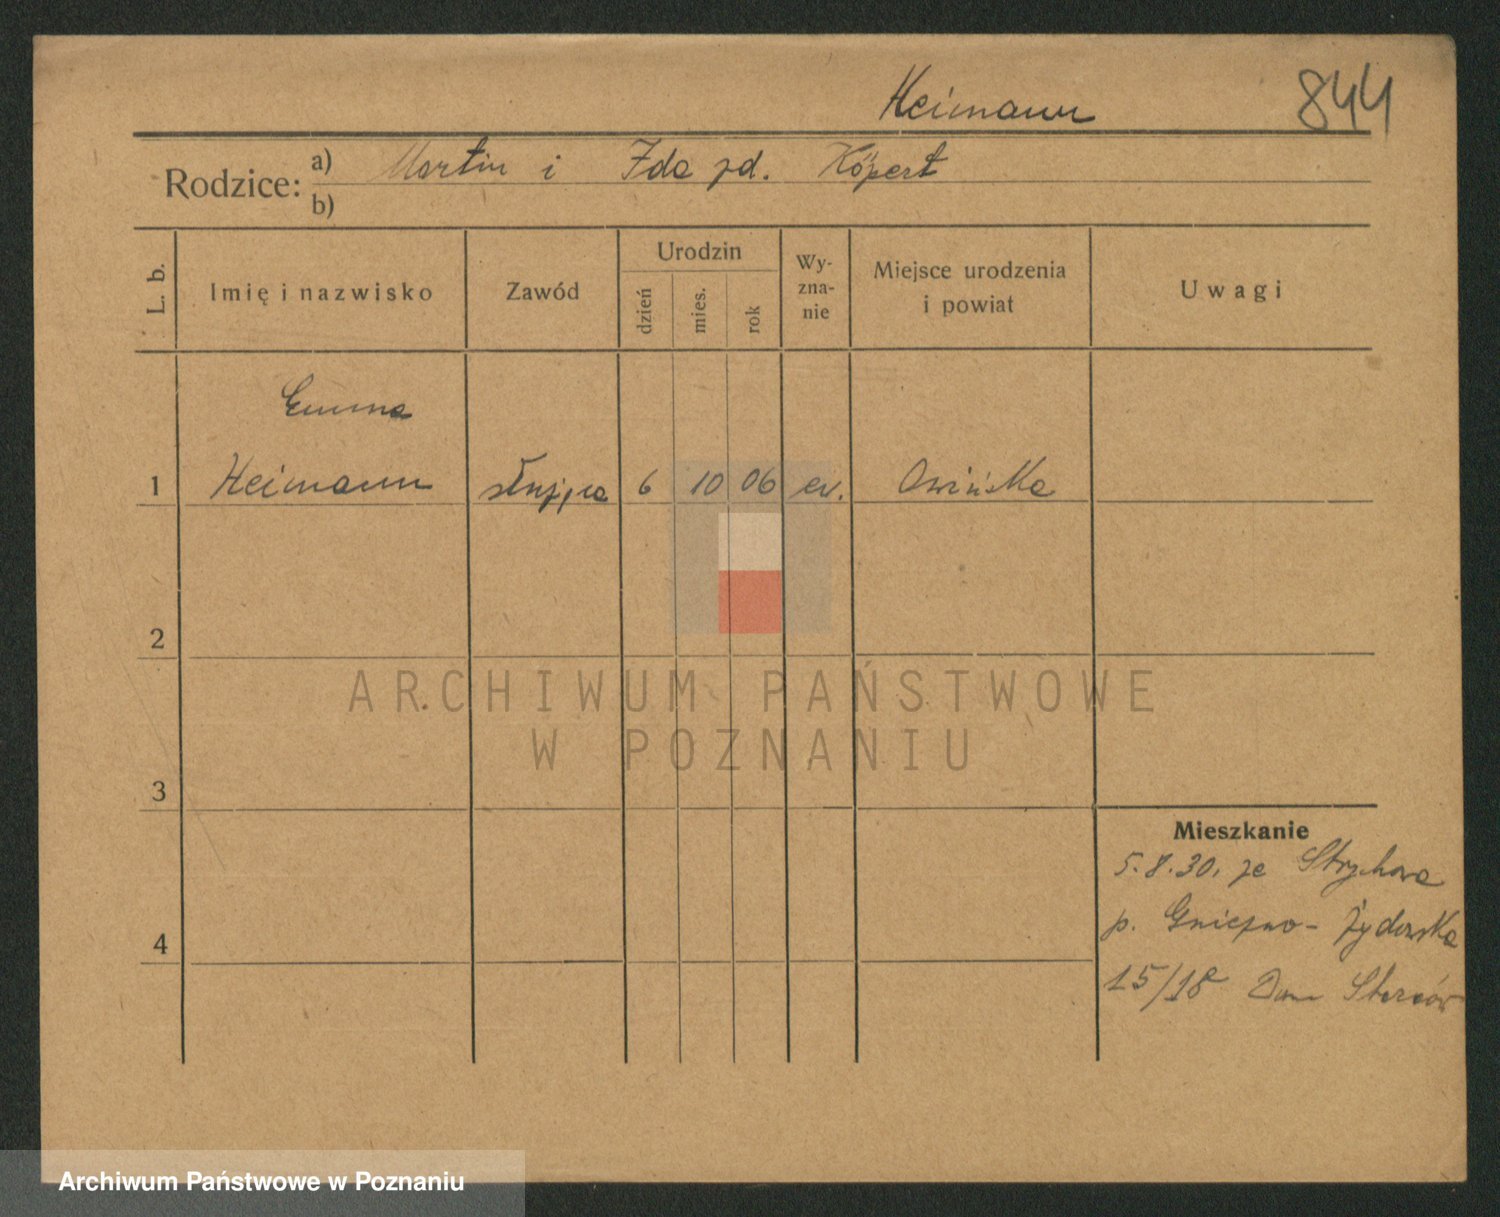 Heimann 844
Rodzice: a) Martin i Ida zd. Köpert
b)
L. b. Imię i nazwisko Zawód Urodzin dzień mies. rok Wy-zna-nie Miejsce urodzenia i powiat Uwagi
Emma
1 Heimann służąca 6 10 06 ew. Owińska
2
ARCHIWUM PAŃSTWOWE
W POZNANIU
3
Mieszkanie
5.8.30. ze Strychowa
4 p. Gniezno - Żydowska
15/18 Dom Starców
Archiwum Państwowe w Poznaniu